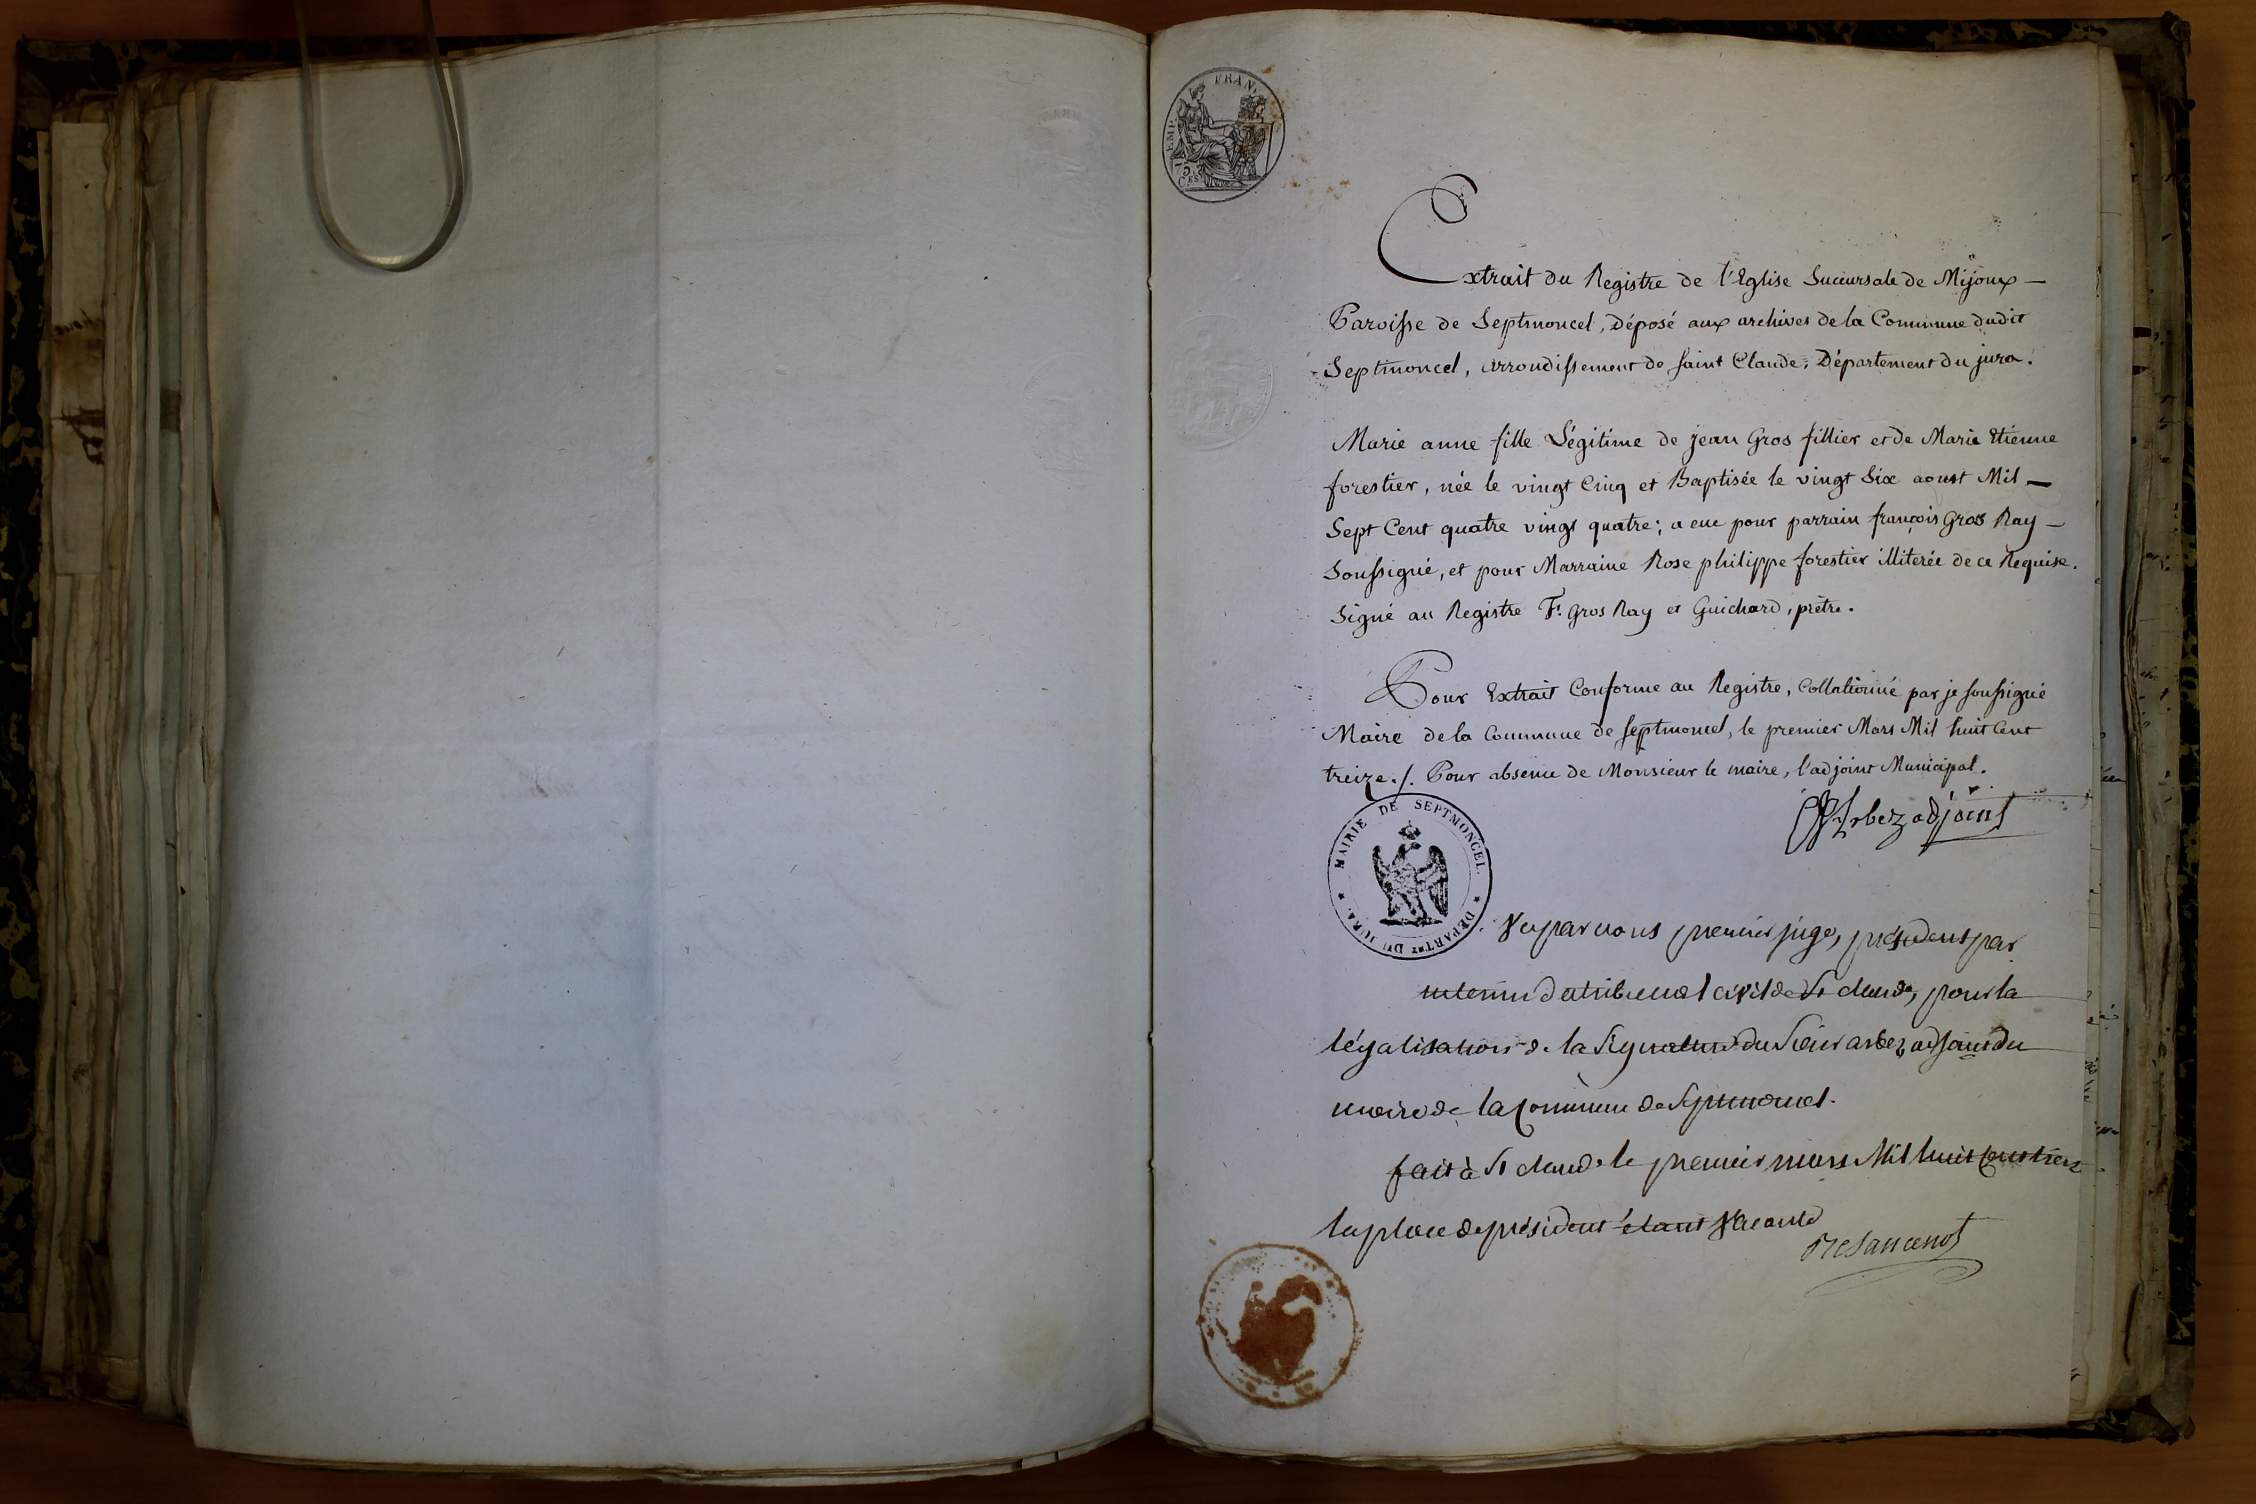 EMP. FRAN.
75
CES
Extrait du Registre de l'Eglise Succursale de Mijoux —
Paroisse de Septmoncel, Déposé aux archives de la Commune dudit
Septmoncel, arrondissement de Saint Claude, Département du jura.
Marie anne fille Légitime de jean Gros fillier et de Marie Etienne
forestier, née le vingt Cinq et Baptisée le vingt Six aoust Mil —
Sept Cent quatre vingt quatre; a eue pour parrain françois Gros Ray —
Soussigné, et pour Marraine Rose philippe forestier illiterée de ce Requise.
Signé au Registre Fs. Gros Ray et Guichard, prêtre.
Pour Extrait Conforme au Registre, Collationné par je soussigné
Maire de la Commune de septmoncel, le premier Mars Mil huit Cent
treize./. Pour absence de Monsieur le maire, l'adjoint Municipal.
Arbez adjoint
MAIRIE DE SEPTMONCEL * DEPARTMT DU JURA *
Vu par nous premier juge, président par
interim du tribunal civil de St claude, pour la
légalisation de la signature du Sieur arbez adjoint du
maire de la Commune de Septmoncel.
fait à St claude le premier mars Mil huit Cent treize
la place de président étant vacante